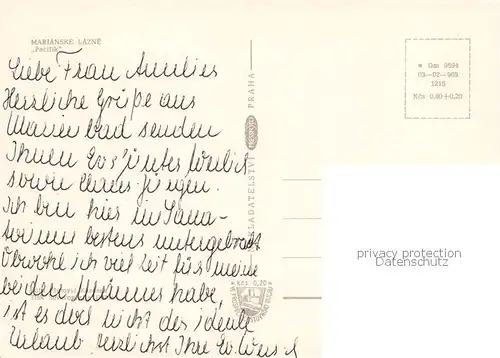 MARIÁNSKÉ LÁZNĚ
„Pacifik"
Liebe Frau Annelies
Herzliche Grüße aus
Marienbad senden
Ihnen
sowie Claus-Jürgen.
Ich bin hier im Sana-
torium bestens untergebracht
Obwohl ich viel Zeit für meine
beiden Männer habe,
ist es doch nicht der ideale
Urlaub. Herzlichst Ihre
NAKLADATELSTVÍ PRAHA
Kčs 0,20
* Gm 9594
03-02-989
1215
Kčs 0,80+0,20
privacy protection
Datenschutz